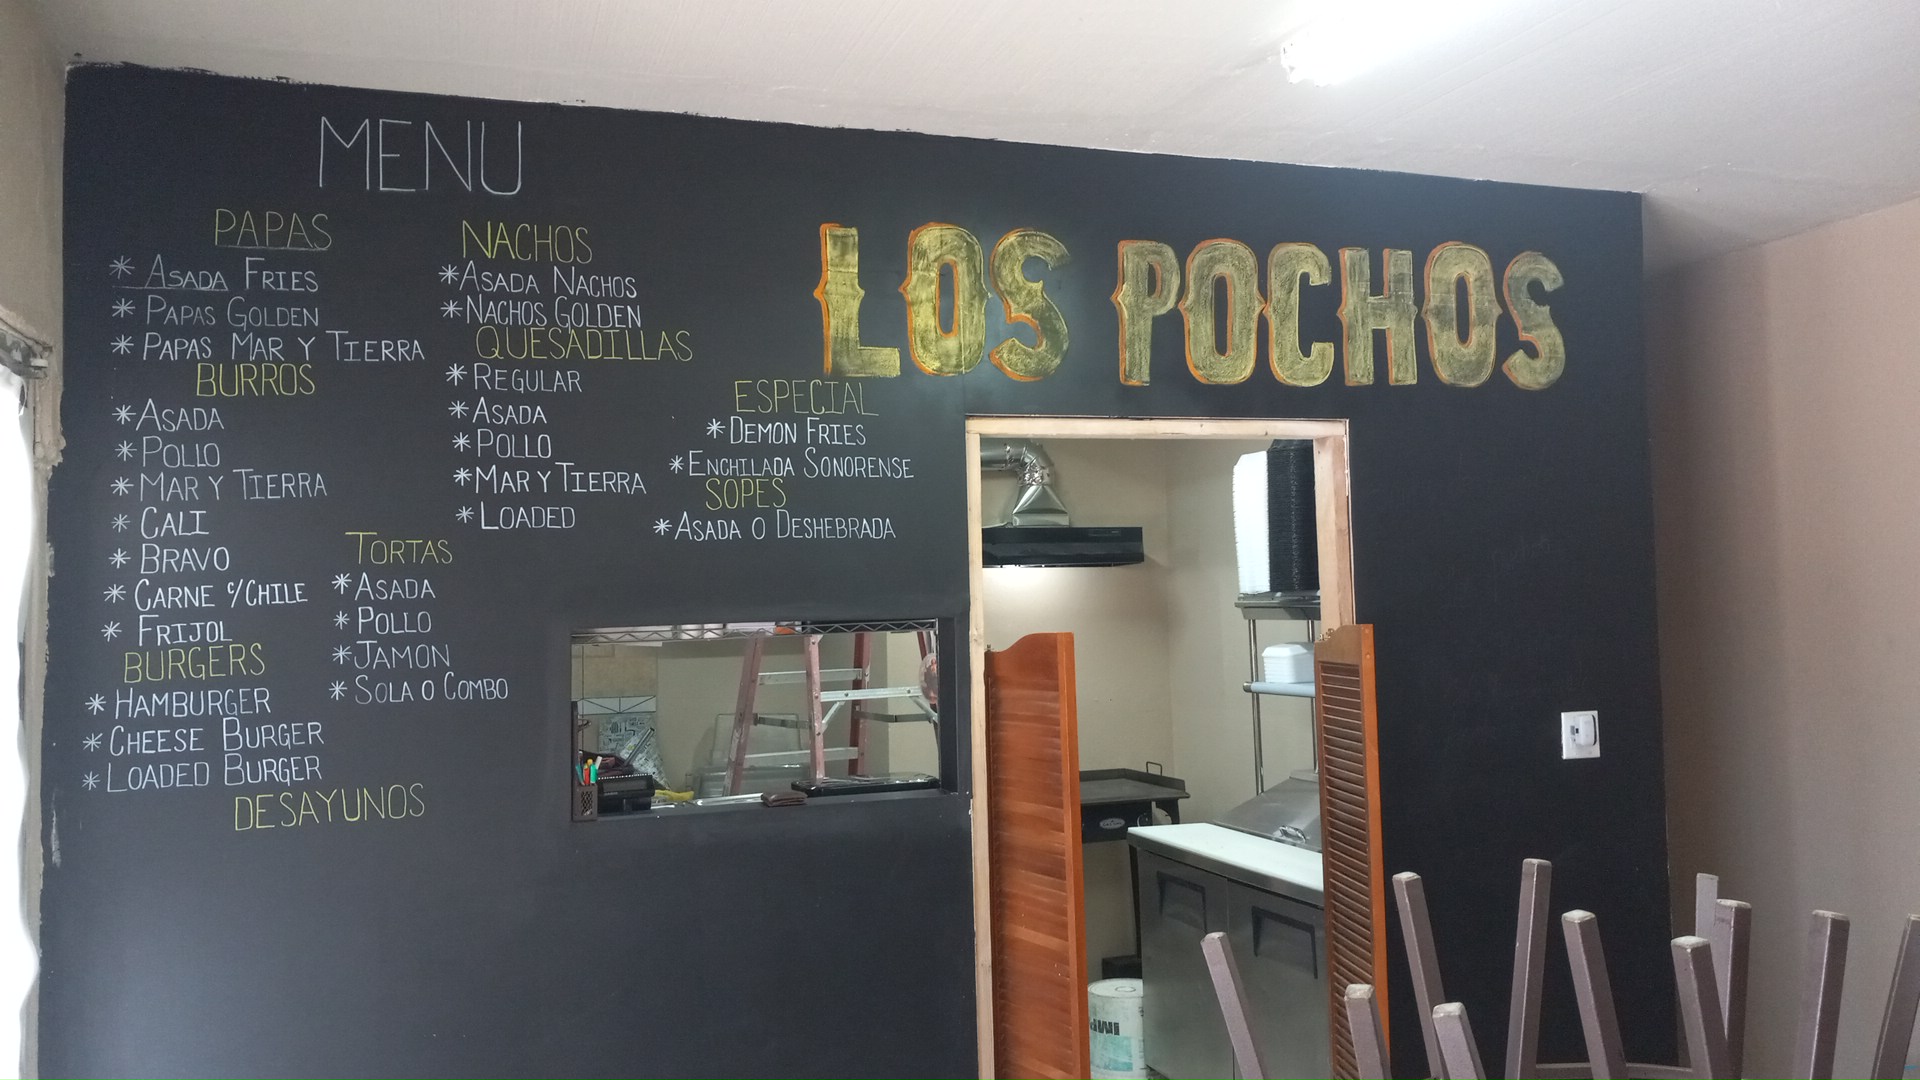 MENU
LOS POCHOS
PAPAS
* ASADA FRIES
* PAPAS GOLDEN
* PAPAS MAR Y TIERRA
BURROS
* ASADA
* POLLO
* MAR Y TIERRA
* CALI
* BRAVO
* CARNE c/CHILE
* FRIJOL
BURGERS
* HAMBURGER
* CHEESE BURGER
* LOADED BURGER
DESAYUNOS
NACHOS
* ASADA NACHOS
* NACHOS GOLDEN
QUESADILLAS
* REGULAR
* ASADA
* POLLO
* MAR Y TIERRA
* LOADED
TORTAS
* ASADA
* POLLO
* JAMON
* SOLA O COMBO
ESPECIAL
* DEMON FRIES
* ENCHILADA SONORENSE
SOPES
* ASADA O DESHEBRADA